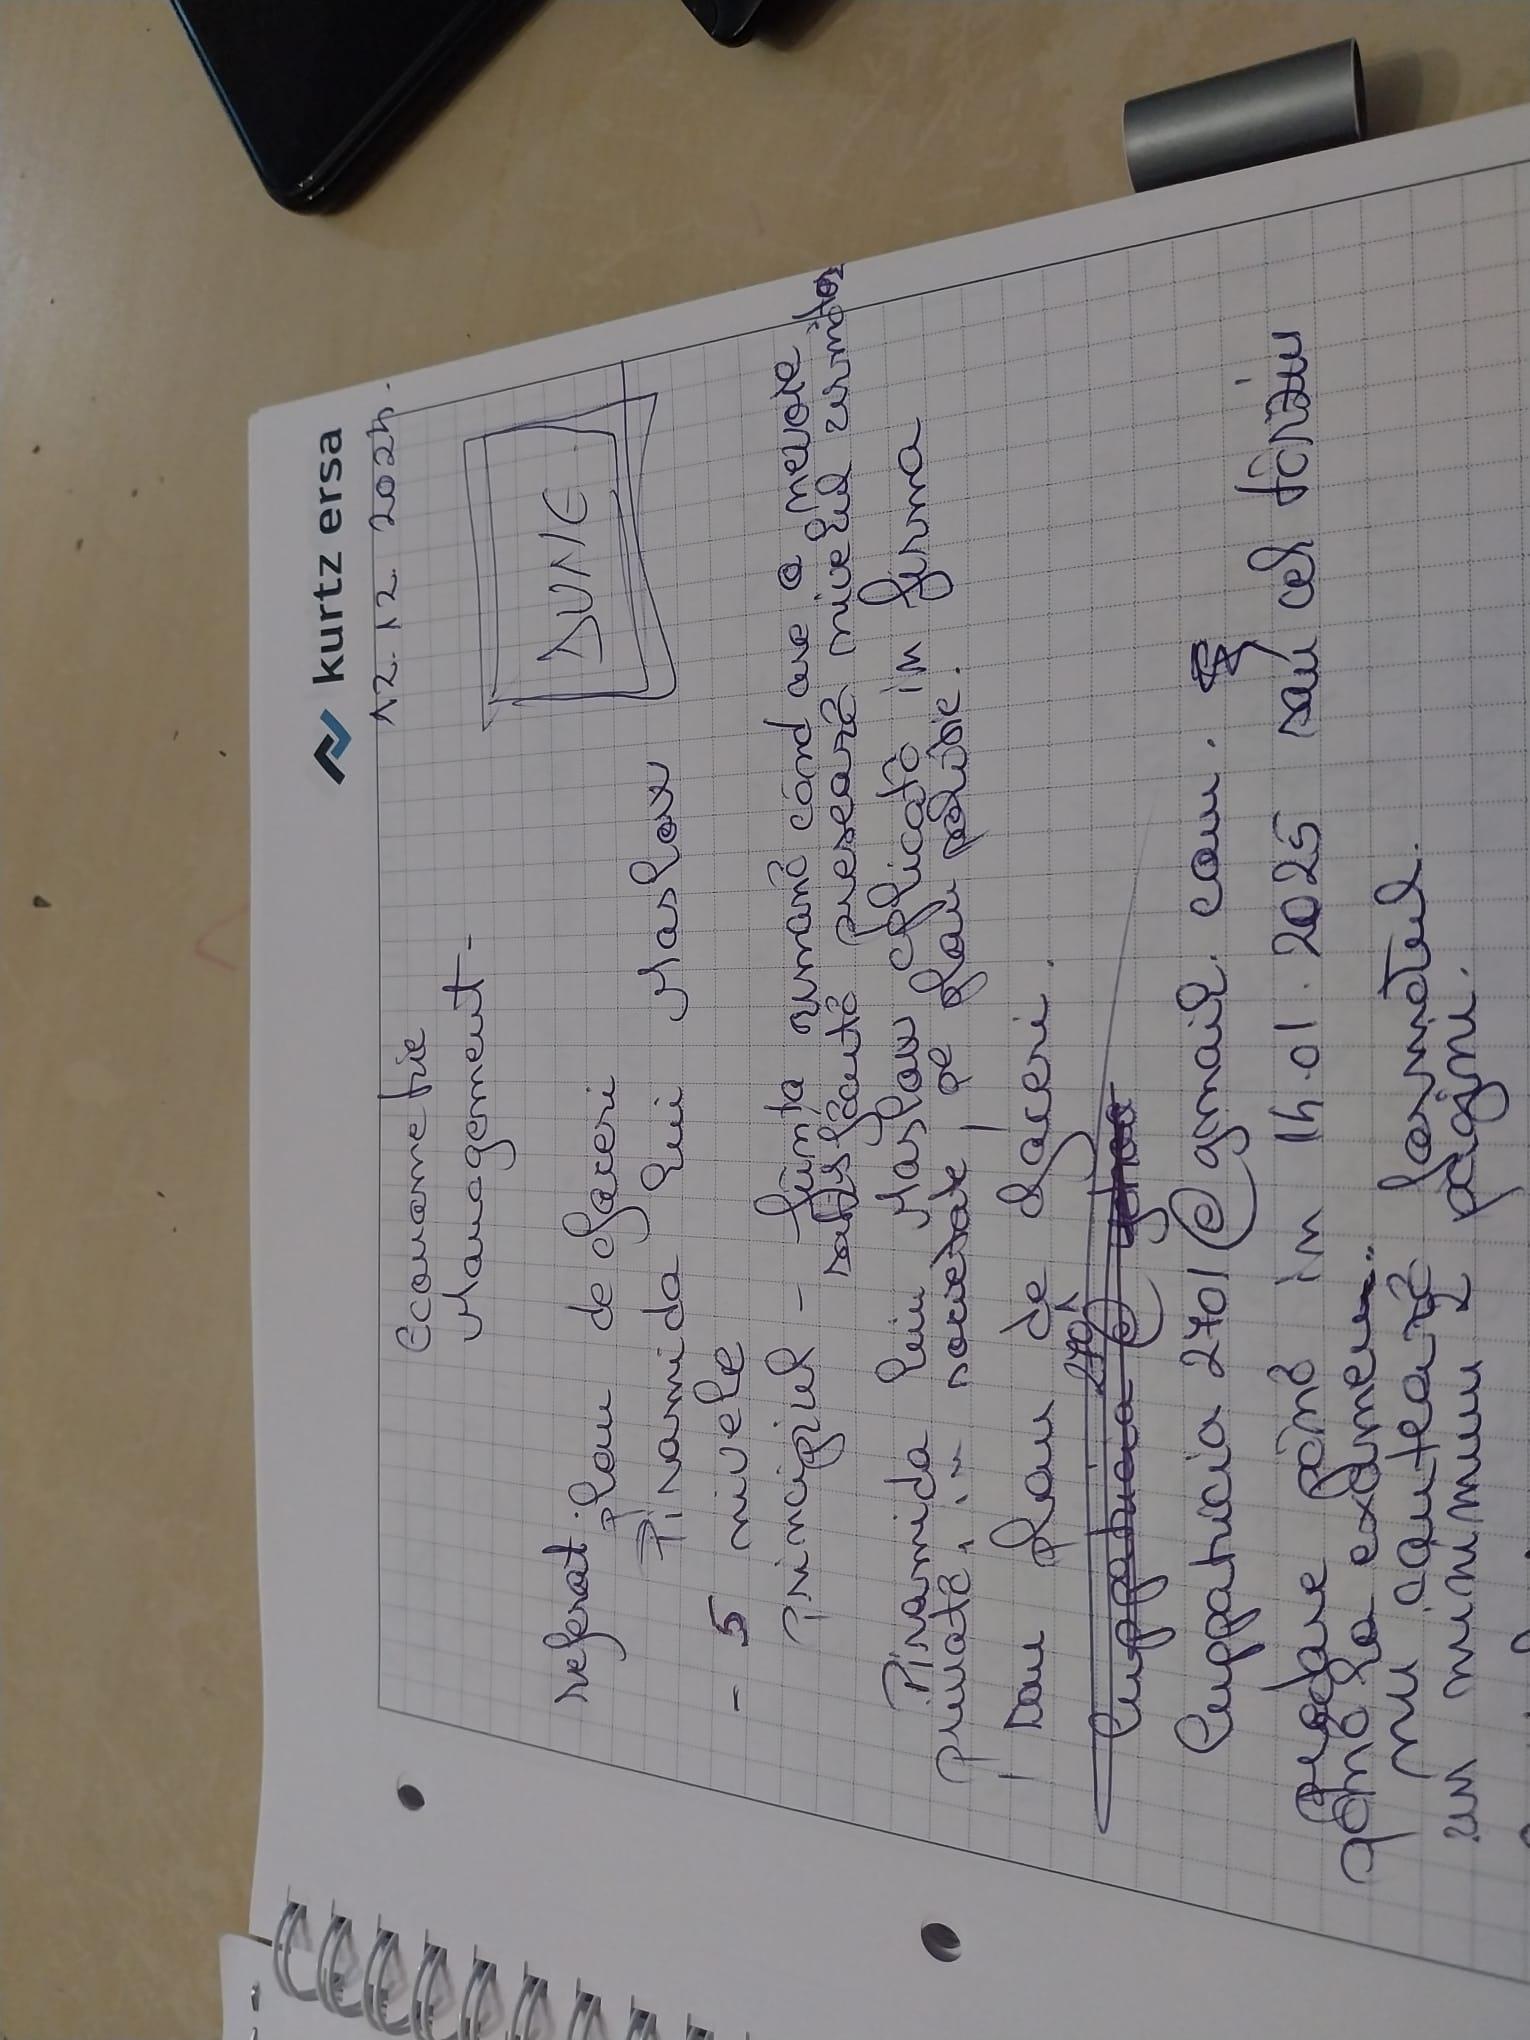 kurtz ersa
12.12.2024.
Econometrie
Management -
DUNE
referat. Plan de afaceri
Piramida lui Maslow
- 5 nivele
Principiul - ființa umană când are o nevoie
satisfăcută presează nivelul următor
Piramida lui Maslow aplicată în firma
privată, societate, pe plan politic.
sau plan de afaceri.
270
luppatricia2701@gmail.com.
predare până în 14.01.2025 sau cel târziu
până la examen
nu contează formatul.
un minimum 2 pagini.